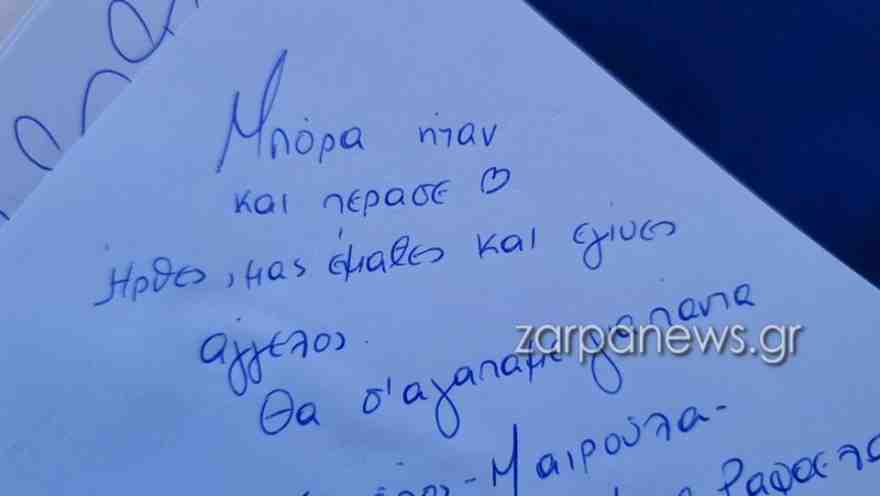 Μπόρα ήταν
και πέρασε ♡
Ήρθες, μας έμαθες και έγινες
άγγελος.
Θα σ'αγαπάμε για πάντα
zarpanews.gr
-Μαιρούλα-
Ραφαέλα